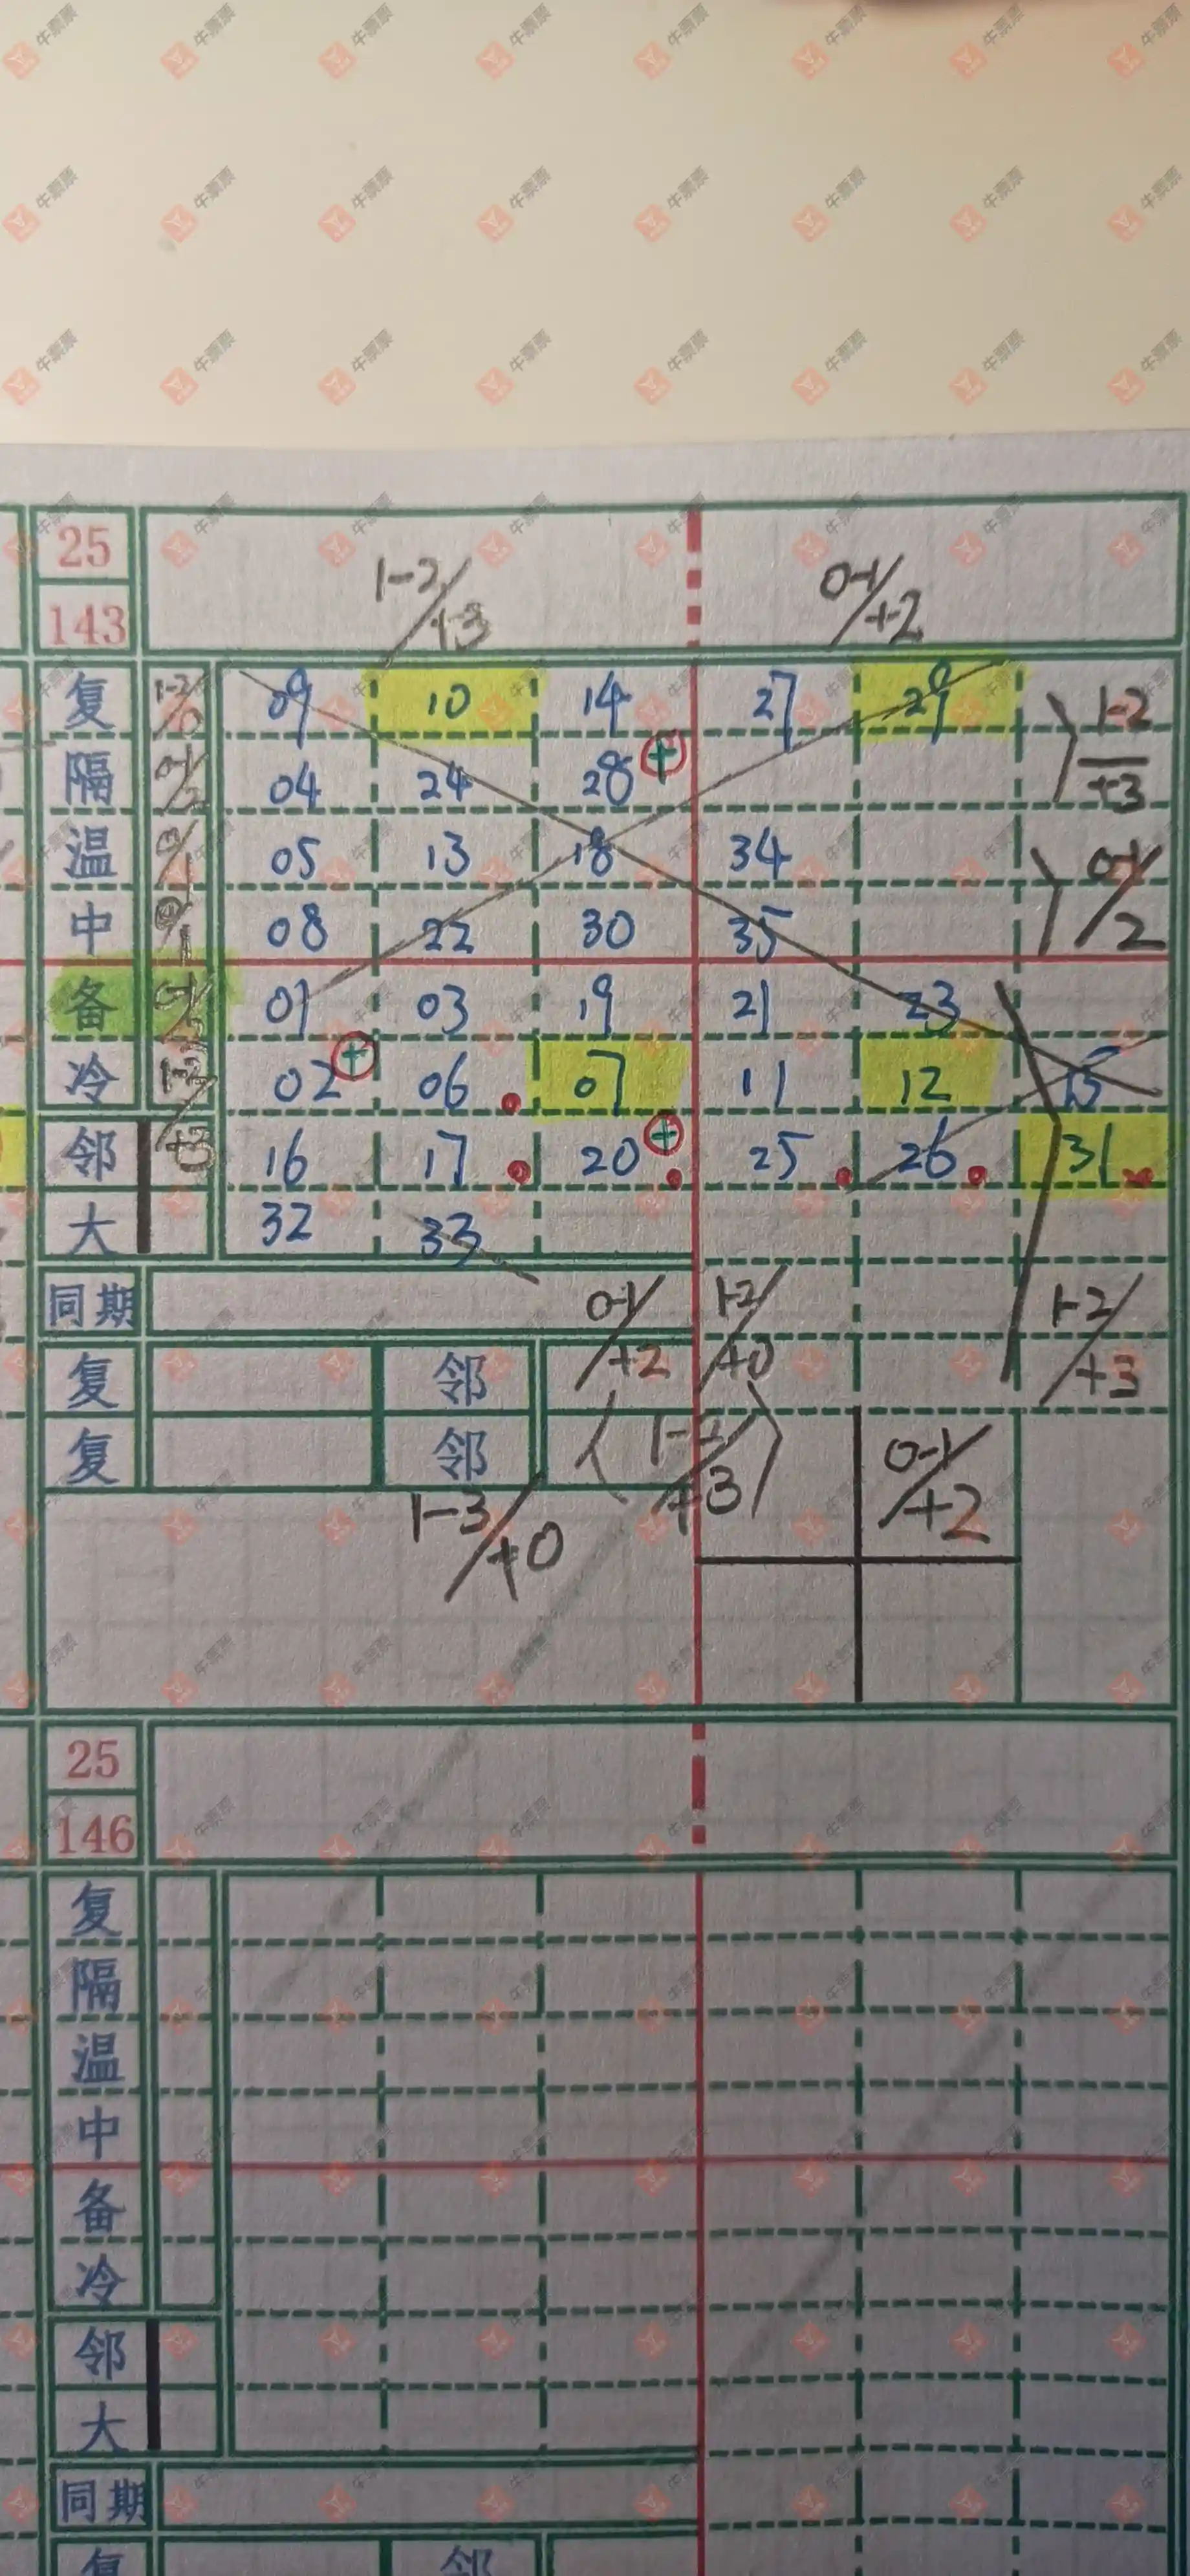 25
143
1-2/+3 0-1/+2
复 09 10 14 27 29 1-2/+3
隔 04 24 28 +
温 05 13 18 34 0-1/2
中 08 22 30 35
备 01 03 19 21 23
冷 1-2/+3 02 + 06 07 11 12 15
邻 16 17 20 + 25 26 31
大 32 33
同期 0-1/+2 1-2/+0 1-2/+3
复 邻
复 邻 1-2/+3 0-1/+2
1-3/+0
25
146
复
隔
温
中
备
冷
邻
大
同期
复 邻
牛票票